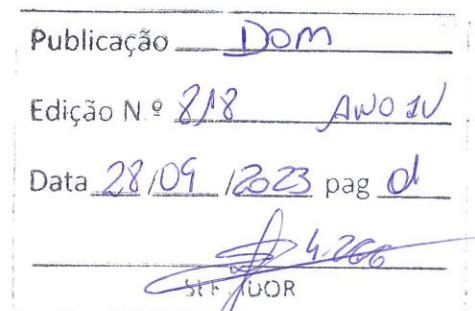 Publicação DOM
Edição N.º 818 ANO IV
Data 28/09/2023 pag
4.266
SERVIDOR